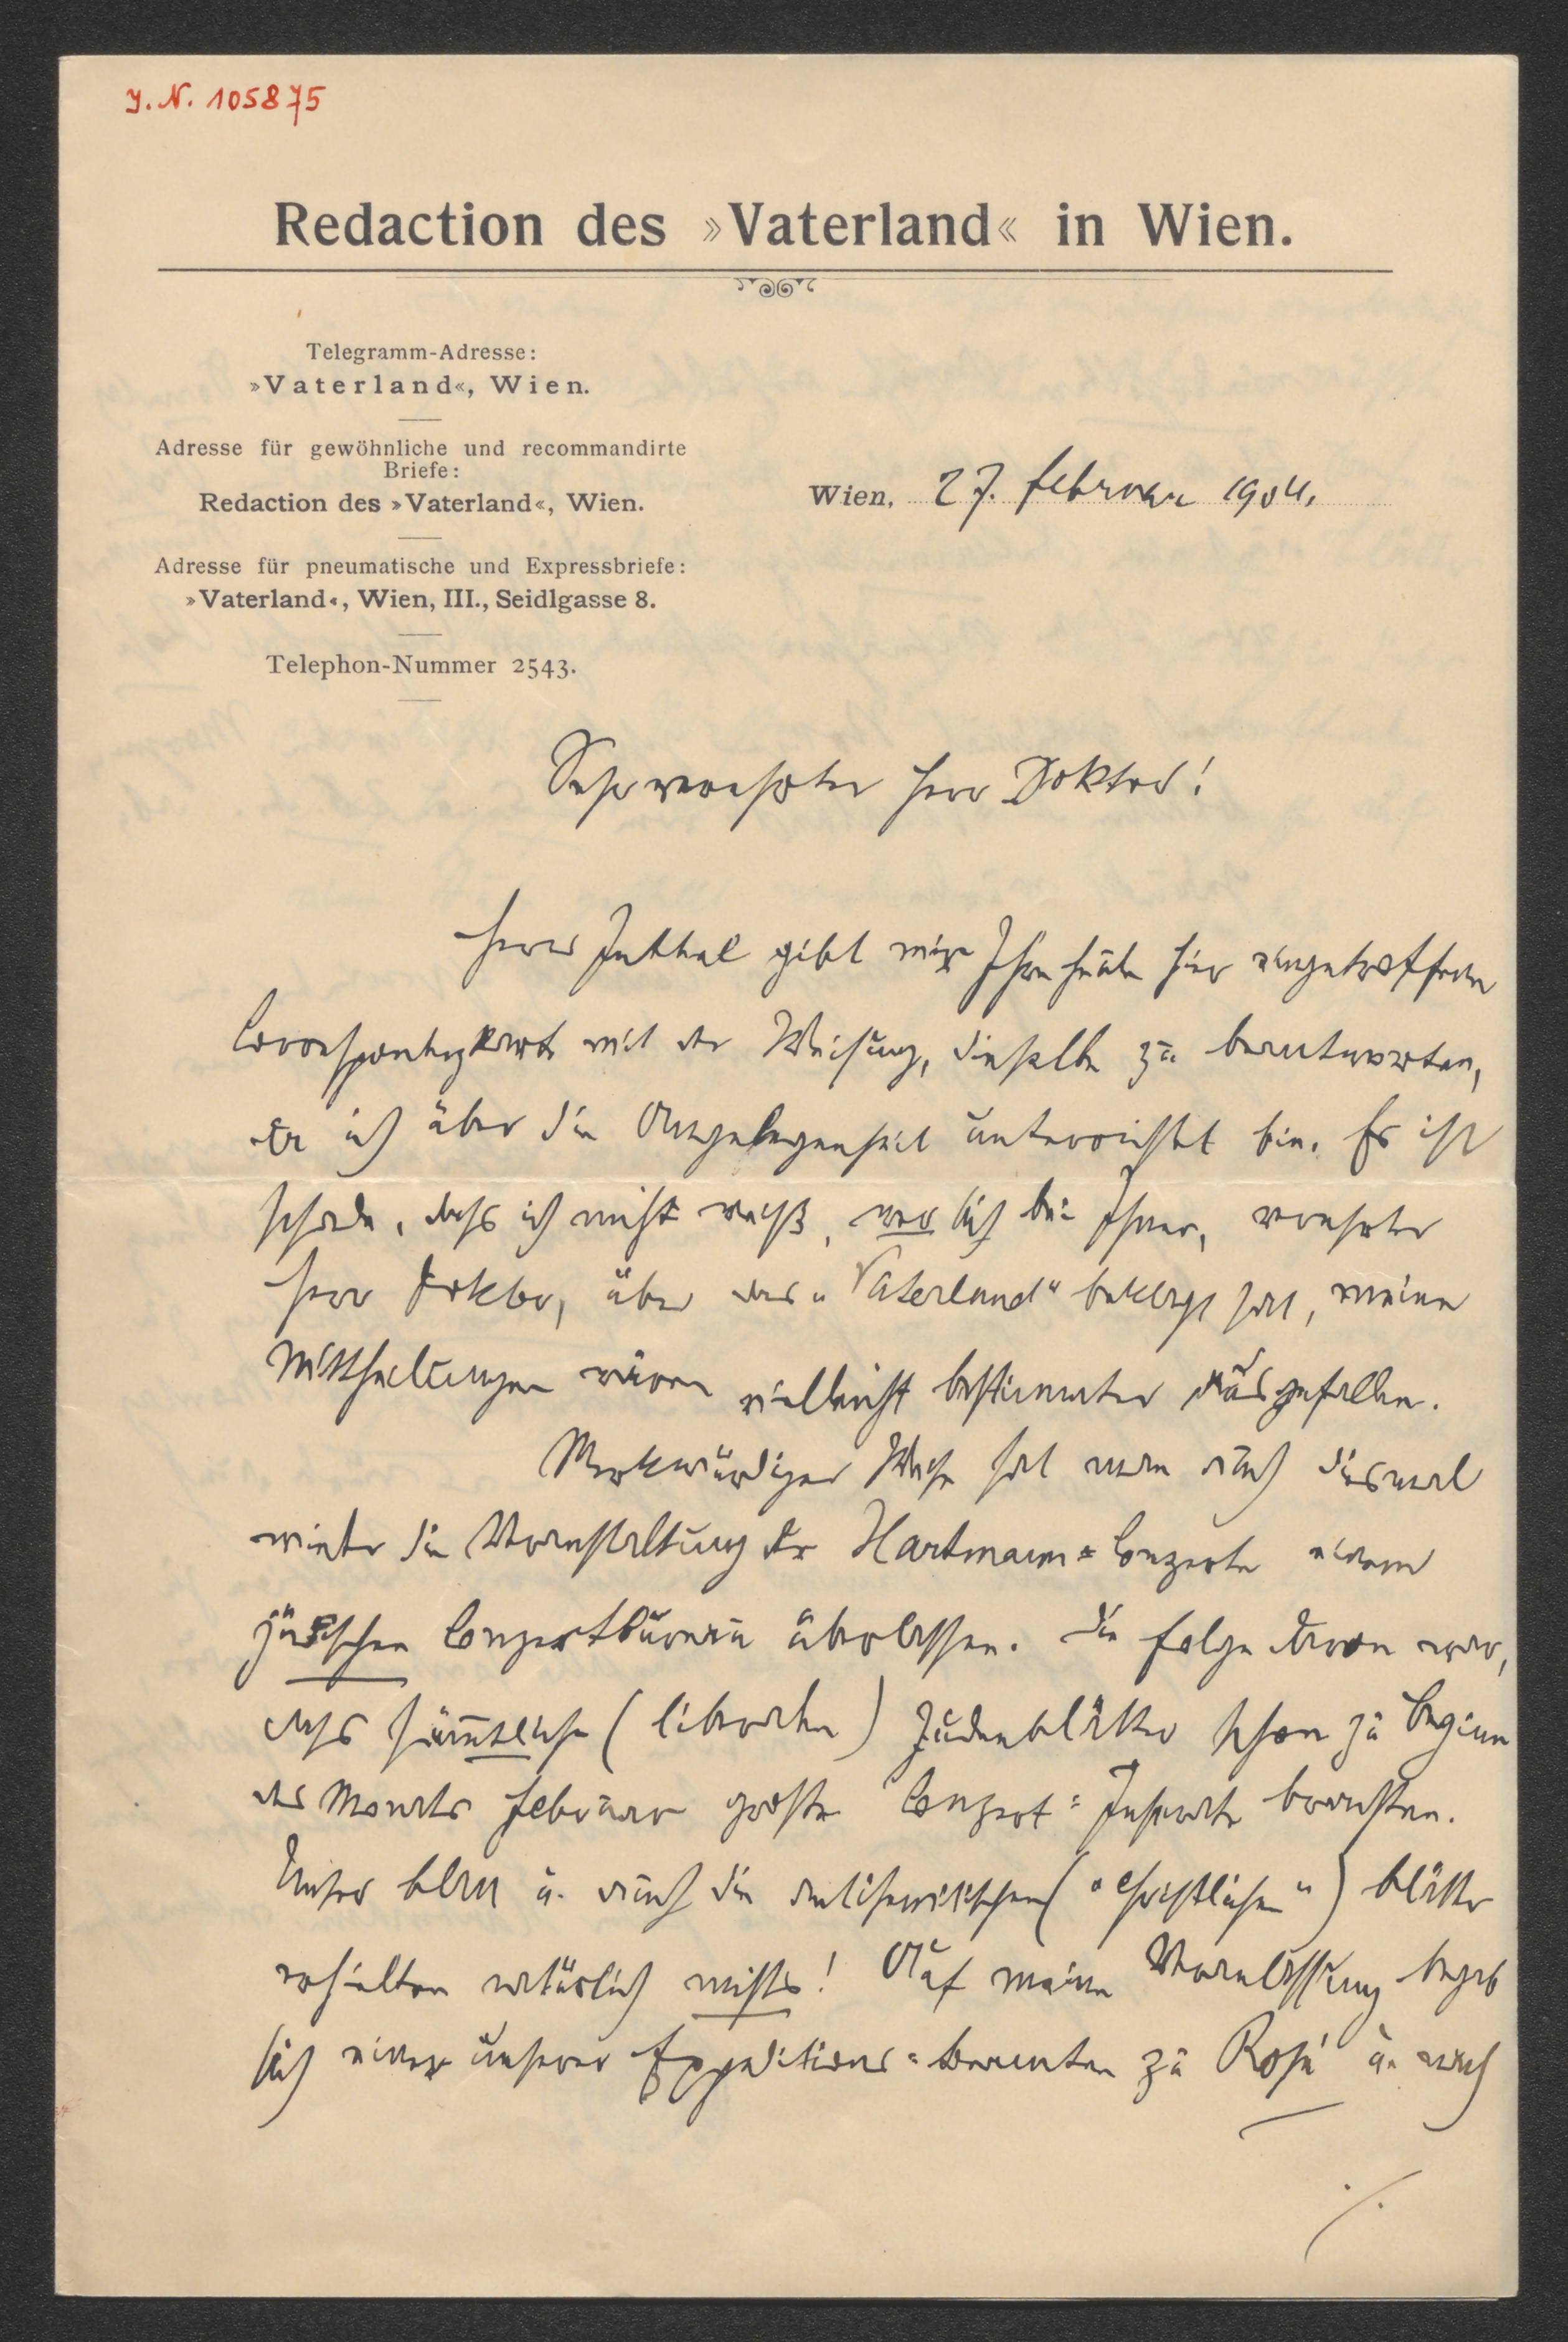 J. N. 105875
Redaction des »Vaterland« in Wien.
Telegramm-Adresse:
»Vaterland«, Wien.
Adresse für gewöhnliche und recommandirte
Briefe:
Redaction des »Vaterland«, Wien.
Adresse für pneumatische und Expressbriefe:
»Vaterland«, Wien, III., Seidlgasse 8.
Telephon-Nummer 2543.
Wien, 27. Februar 1904.
Sehr verehrter Herr Doktor!
Herr gibt mir Ihre heute hier eingetroffene
Correspondenzkarte mit der Weisung, dieselbe zu beantworten,
da ich über die Angelegenheit unterrichtet bin. Es ist
schade, dass ich nicht weiß, wer sich bei Ihnen, verehrter
Herr Doktor, über das „Vaterland" beklagt hat, meine
Mittheilungen wären vielleicht bestimmter ausgefallen.
Merkwürdiger Weise hat man auch diesmal
wieder die Veranstaltung der Hartmann=Conzerte einem
jüdischen Conzertbureau überlassen. Die Folge davon war,
dass sämmtliche (liberalen) Judenblätter schon zu Beginn
des Monats Februar große Conzert=Inserate brachten.
Unser Blatt u. auch die antisemitischen („christlichen") Blätter
erhielten natürlich nichts! Auf meine Veranlassung begab
sich einer unserer Expeditions=Beamten zu Rosé u. auch
./.